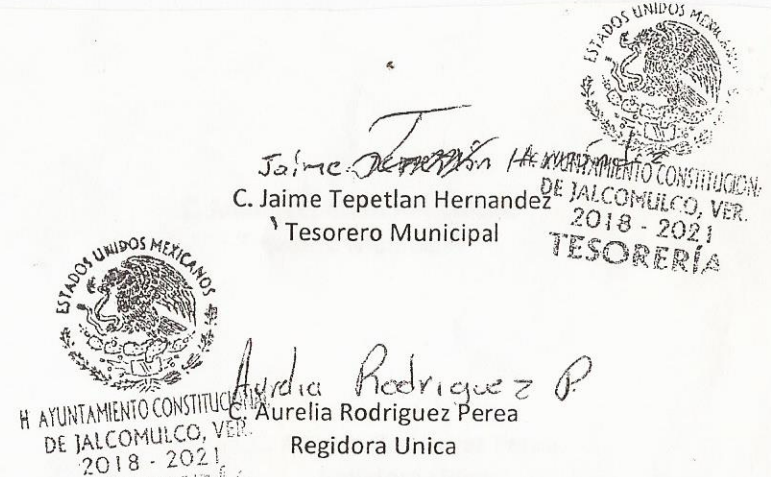 ESTADOS UNIDOS
H. AYUNTAMIENTO CONSTITUCION
DE JALCOMULCO, VER.
2018 - 2021
TESORERÍA
Jaime
C. Jaime Tepetlan Hernandez
Tesorero Municipal
ESTADOS UNIDOS MEXICANOS
H AYUNTAMIENTO
DE JALCOMULCO, VER.
2018 - 2021
Aurelia Rodriguez P.
C. Aurelia Rodriguez Perea
Regidora Unica